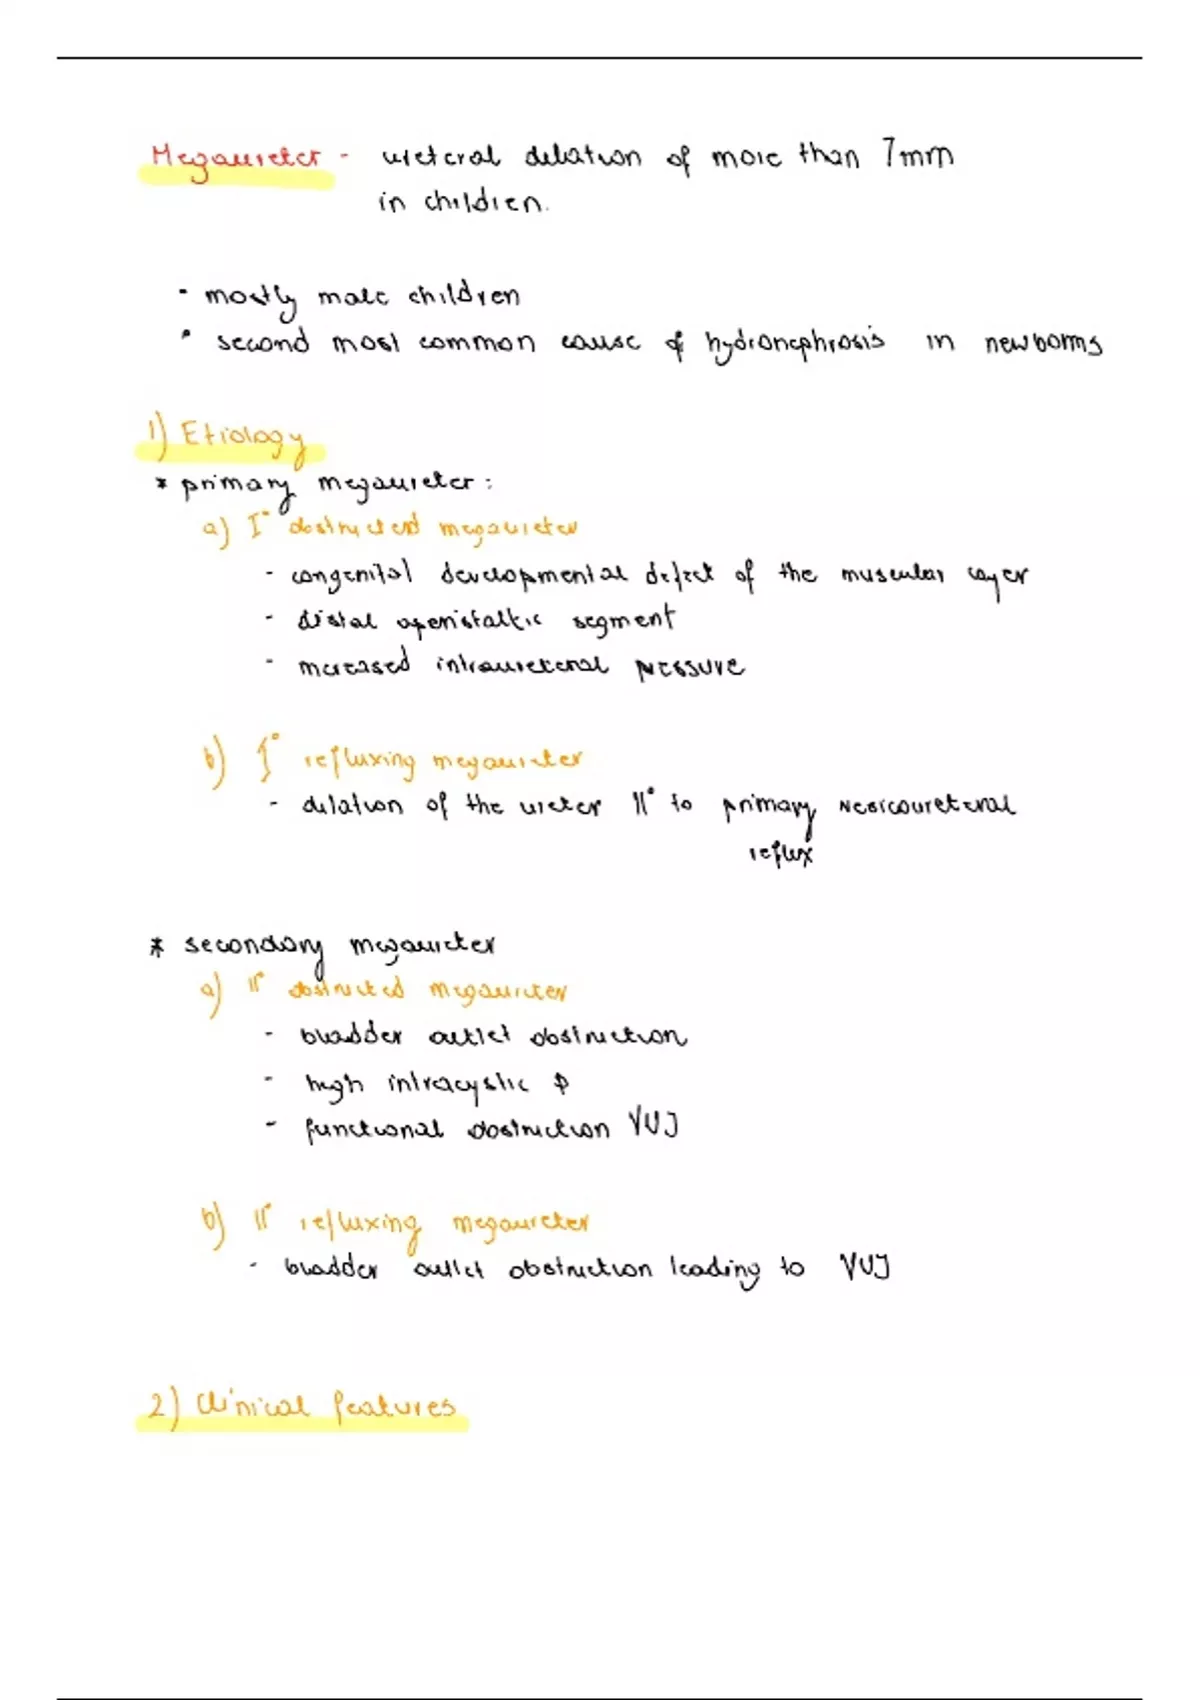 Megaureter - ureteral dilation of more than 7mm
in children.
• mostly male children
• second most common cause of hydronephrosis in newborns
1) Etiology
* primary megaureter:
a) I° obstructed megaureter
- congenital developmental defect of the muscular layer
- distal aperistaltic segment
- increased intraureteral pressure
b) I° refluxing megaureter
- dilation of the ureter II° to primary vesicoureteral
reflux
* secondary megaureter
a) II° obstructed megaureter
- bladder outlet obstruction
- high intracystic p
- functional obstruction VUJ
b) II° refluxing megaureter
- bladder outlet obstruction leading to VUJ
2) Clinical features